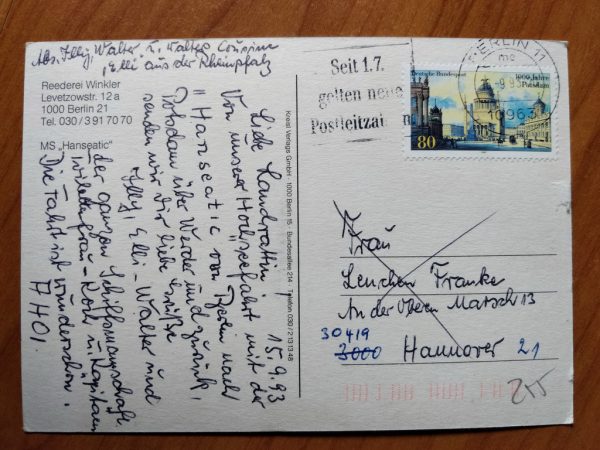 Abs. Illy, Walter u. Walters Cousine
"Elli" aus der Rheinpfalz
Reederei Winkler
Levetzowstr. 12 a
1000 Berlin 21
Tel. 030 / 3 91 70 70
MS „Hanseatic"
15.9.93
Liebe Landratten,
Von unserer Hochseefahrt mit der
"Hanseatic von Tegel nach
Potsdam über Werder und zurück,
senden wir Dir liebe Grüße
Illy, Elli - Walter und
der ganzen Schiffsmannschaft
frau - Koch u. Kapitän
Die Fahrt ist wunderschön.
AHOI.
Kreal Verlags GmbH · 1000 Berlin 15 · Bundesallee 214 · Telefon 030 / 213 13 48
Seit 1.7.
gelten neue
Postleitzahlen
BERLIN 11
10963
Deutsche Bundespost
1000 Jahre
Potsdam
80
Frau
Lenchen Franke
An der Oberen Marsch 13
30419
3000 Hannover 21
255